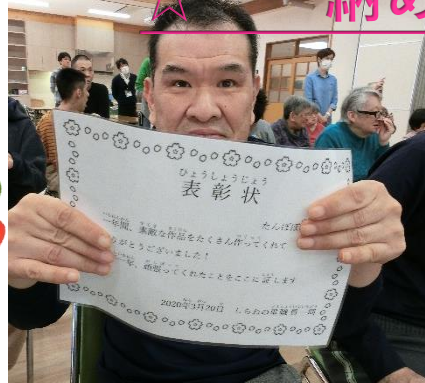 ☆
納め
ひょうしょうじょう
表彰状
たんぽぽ
一年間、素敵な作品をたくさん作ってくれて
りがとうございました！
年、頑張ってくれたことをここに証します
2020年3月20日 しもわの